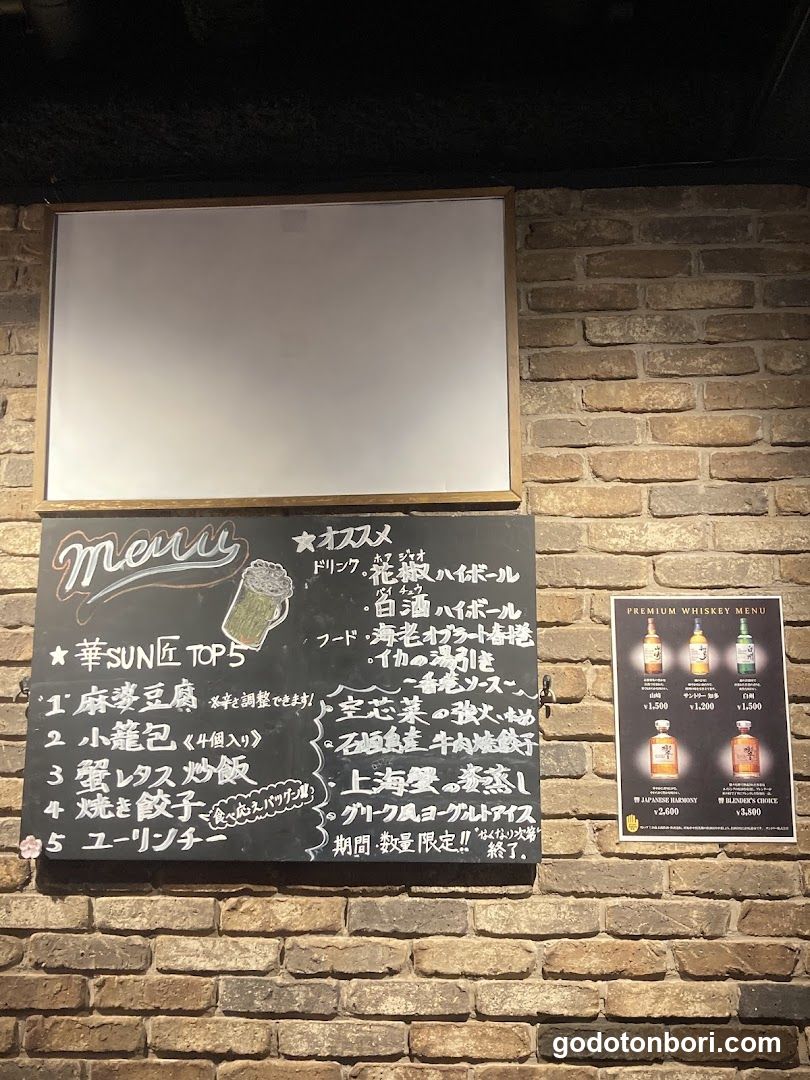 menu
★華SUN匠 TOP5
1 麻婆豆腐 ※辛さ調整できます!
2 小籠包《4個入り》
3 蟹レタス炒飯
4 焼き餃子 食べ応えバツグン!!!
5 ユーリンチー
★オススメ
ドリンク ・花椒ハイボール
ホア ジャオ
・白酒ハイボール
パイ チュウ
フード ・海老オブラート春捲
・イカの湯引き
〜香港ソース〜
空芯菜の強火炒め
石垣島産 牛肉焼餃子
上海蟹の姿蒸し
グリーク風ヨーグルトアイス
期間・数量限定!! なくなり次第
終了。
PREMIUM WHISKEY MENU
山崎
¥1,500
サントリー 知多
¥1,200
白州
¥1,500
響 JAPANESE HARMONY
¥2,600
響 BLENDER'S CHOICE
¥3,800
godotonbori.com